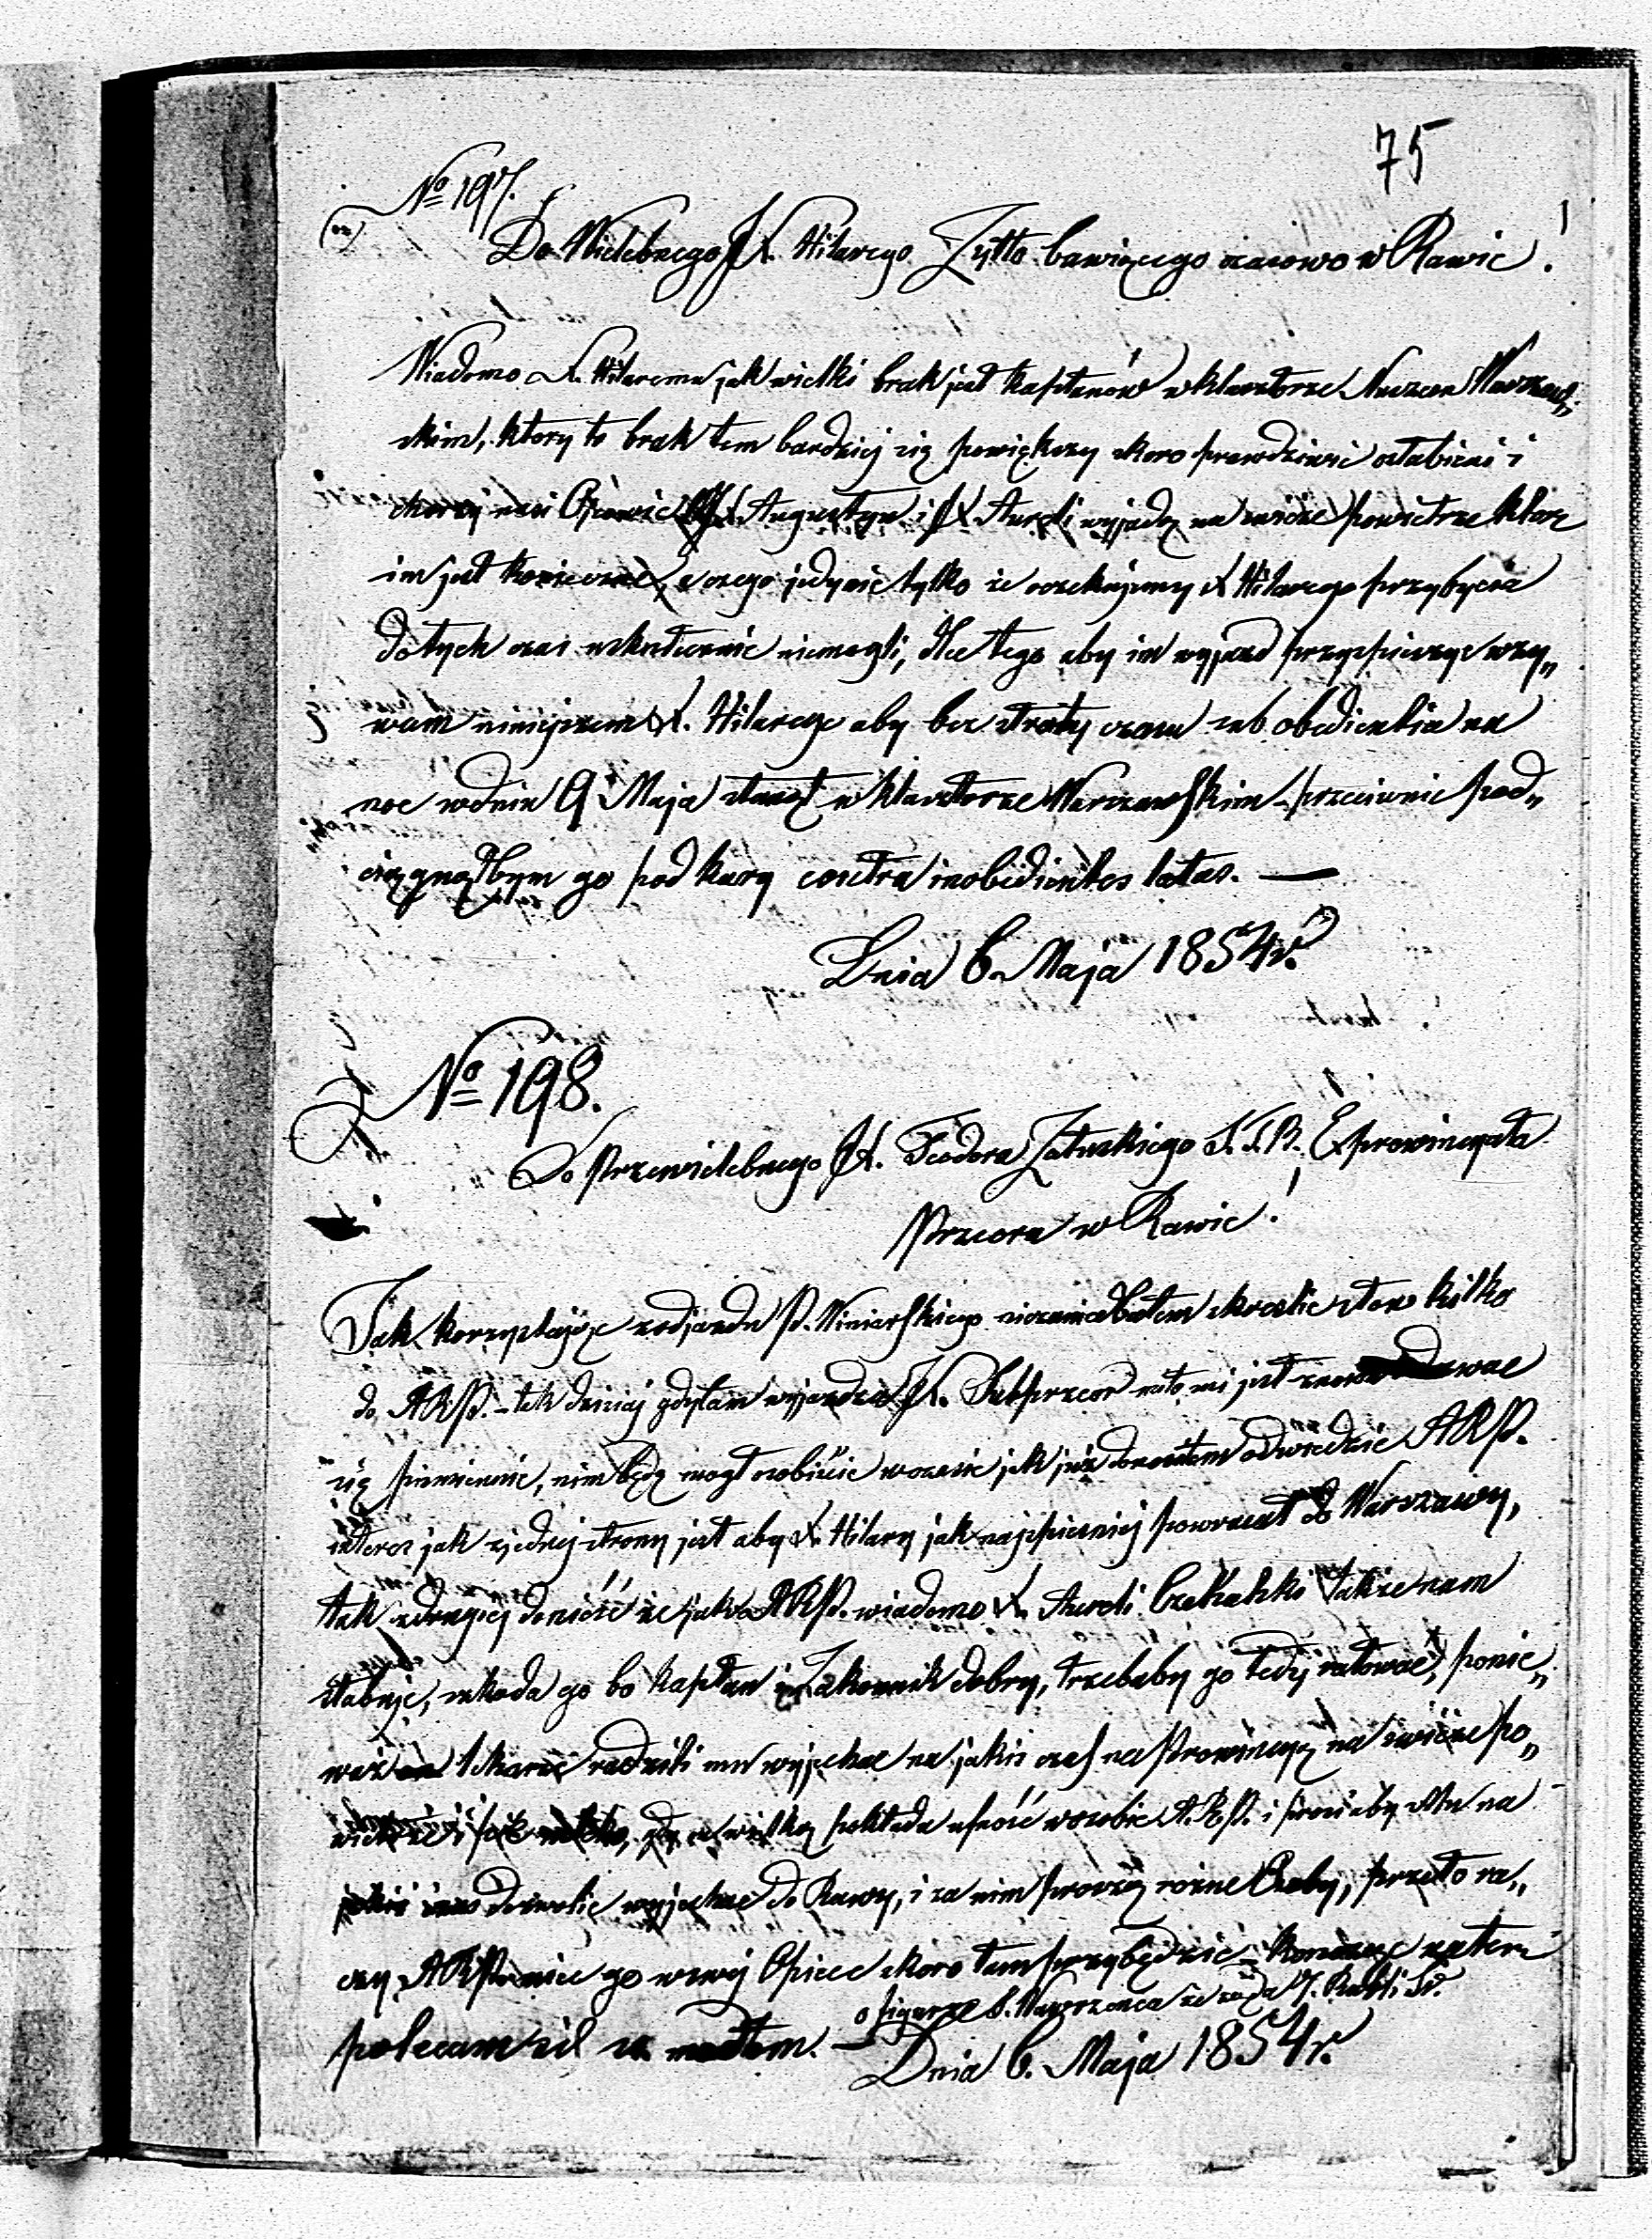 75
№ 197.
Do Wielebnego JX. Hilarego Zytto bawiącego czasowo w Rawie!
Wiadomo X. Hilaremu jak wielki brak jest kapłanów w klasztorze Naszem Warszaw„
skim, ktory to brak tem bardziej się powiększy skoro prawdziwie osłabieni i
chorzy nasi Ojcowie JX. Augustyn i JX. Aureli wyjadą na swieże powietrze które
im jest konieczne, czego jedynie tylko że oczekujemy X Hilarego przybycia
dotych czas uskutecznic niemogli, dla tego aby im wyjazd przyspieszyc wzy„
wam niniejszem X. Hilarego aby bez straty czasu sub obedientia na
noc w dniu 9 Maja stanął w klasztorze Warszawskim – przeciwnie pod„
ciągnąłbym go pod kary contra inobedientes latas. —
Dnia 6. Maja 1854 r.
№ 198.
Do Przewielebnego JX. Teodora Załuskiego S. T. B. Exprowincyała
Przeora w Rawie!
Jak korzystając z odjazdu P. Winiarskiego niezaniedbałem skreslic słow kilka
do ARP. – tak dzisiaj gdy tam wyjezdza JX. Subprzeor miło mi jest znowu udawac
się piśmiennie, nim będę mogł osobiście wczesie jak już doniosłem odwiedzic ARP.
interes jak z jednej strony jest aby X. Hilary jak najspieszniej powracał do Warszawy,
tak z drugiej donieść że jak ARP. wiadomo X. Aureli także nam
słabuje, szkoda go bo kapłan i Zakonnik dobry, trzebaby go tedy ratować, ponie„
waż lekarze radzili mu wyjechac na jakis czas na Prowincyą na swieże po„
wietrze i pokłada ufność w osobie A.R.P. i prosi aby Mu na
jakis czas dozwolic wyjechac do Rawy, i za nim proszą rozne Osoby, przeto ra„
czy ARP. miec go w swej Opiece skoro tam przybędzie – kończąc zatem
o figurze S. Wawrzenca ze
polecam się —
Dnia 6. Maja 1854 r.